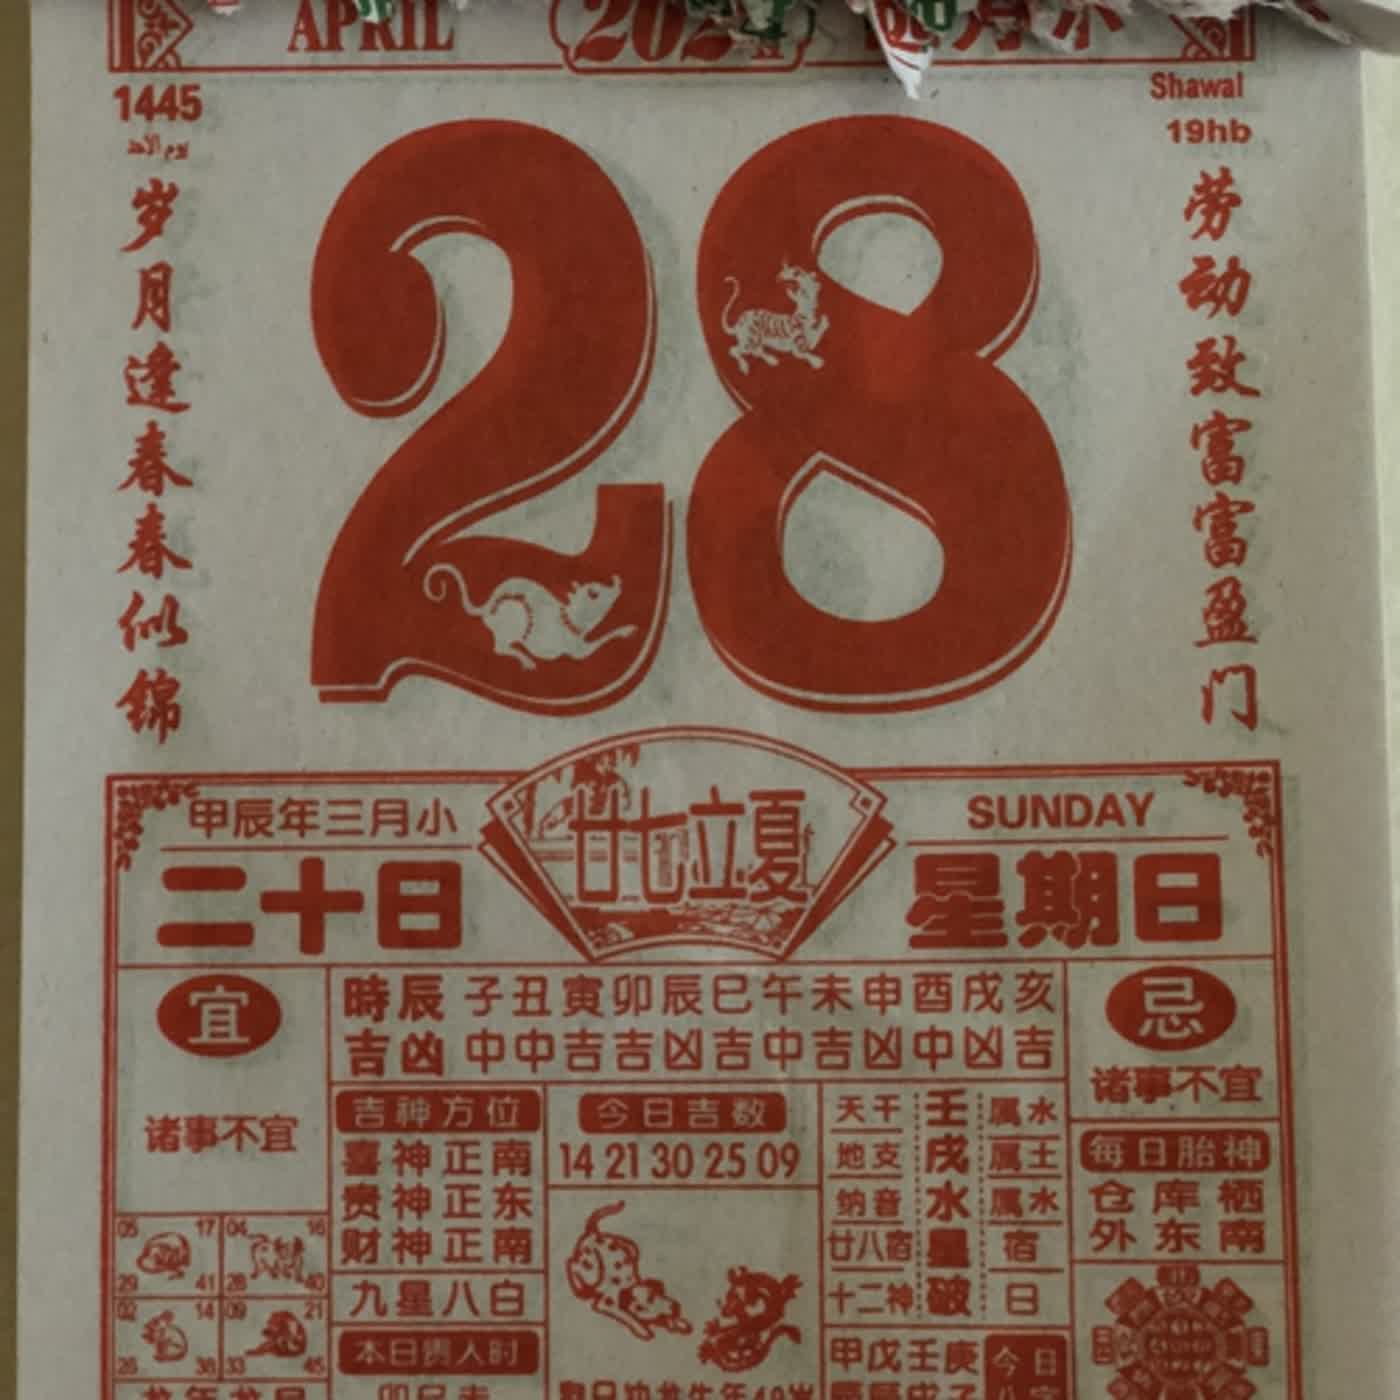 APRIL 2024 四月小
1445
Shawal
19hb
岁月逢春春似锦
28
劳动致富富盈门
甲辰年三月小
二十日
廿七立夏
SUNDAY
星期日
宜
诸事不宜
時辰 子丑寅卯辰巳午未申酉戌亥
吉凶 中中吉吉凶吉中吉凶中凶吉
忌
诸事不宜
吉神方位
喜神正南
贵神正东
财神正南
九星八白
本日贵人时
今日吉数
14 21 30 25 09
天干 壬 属水
地支 戌 属土
纳音 水 属水
廿八宿 星 宿
十二神 破 日
甲戊壬庚
今日
每日胎神
仓库栖
外东南
05 17
29 41
04 16
28 40
02 14
26 38
09 21
33 45